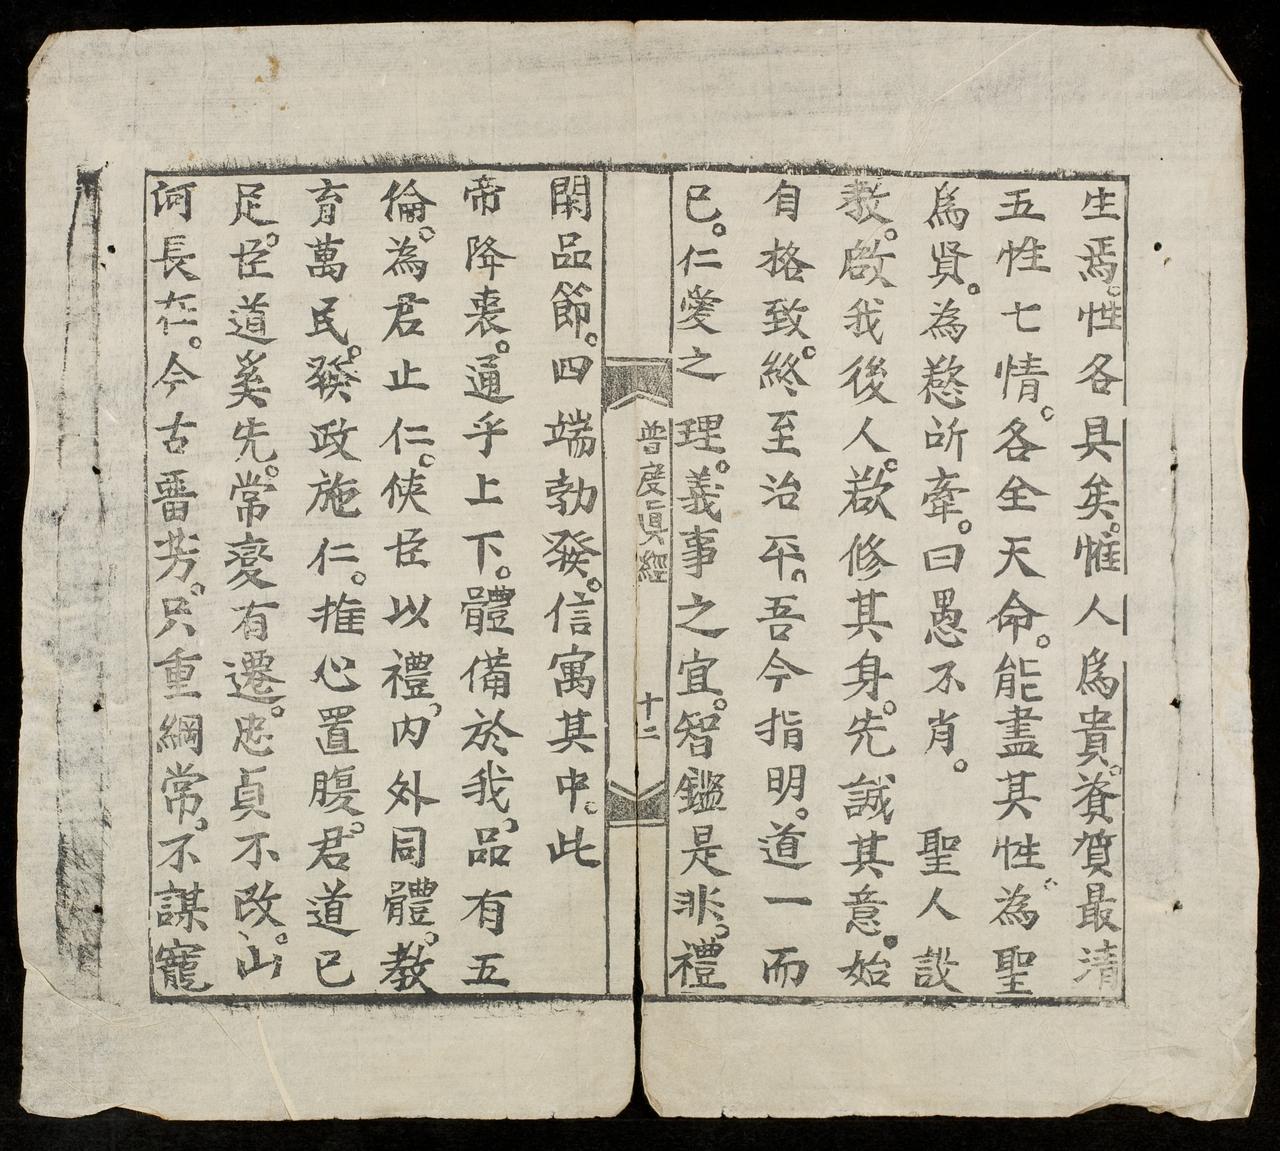 生焉。性各具矣。惟人爲貴。資質最清
五性七情。各全天命。能盡其性。為聖
爲賢。為慾所牽。曰愚不肖。　聖人設
教。啟我後人。欲修其身。先誠其意。始
自格致。終至治平。吾今指明。道一而
已。仁愛之理。義事之宜。智鑑是非。禮
普度眞經
十二
閑品節。四端勃發。信寓其中。此
帝降衷。通乎上下。體備於我。品有五
倫。為君止仁。使臣以禮。內外同體。教
育萬民。發政施仁。推心置腹。君道已
足。臣道奚先。常変有遷。忠貞不改。山
河長在。今古畨芳。只重綱常。不謀寵